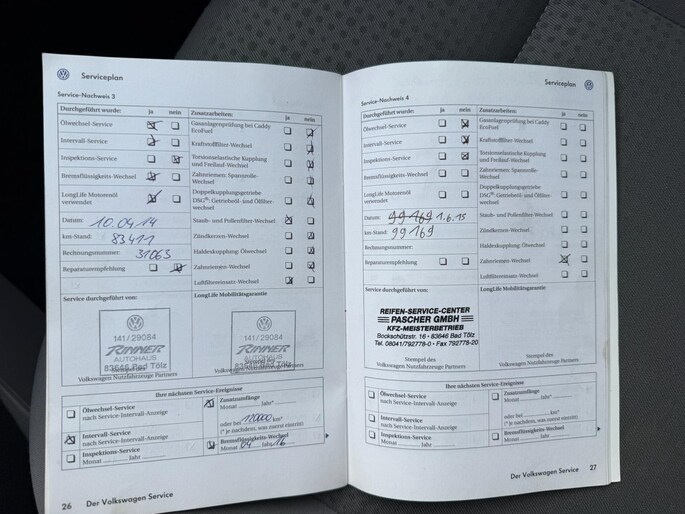 Serviceplan
Service-Nachweis 3
Durchgeführt wurde: ja nein
Ölwechsel-Service
Intervall-Service
Inspektions-Service
Bremsflüssigkeits-Wechsel
LongLife Motorenöl
verwendet
Datum: 10.04.14
km-Stand: 83411
Rechnungsnummer: 31063
Reparaturempfehlung
Zusatzarbeiten: ja nein
Gasanlagenprüfung bei Caddy
EcoFuel
Kraftstofffilter-Wechsel
Torsionselastische Kupplung
und Freilauf-Wechsel
Zahnriemen: Spannrolle-
Wechsel
Doppelkupplungsgetriebe
DSG®: Getriebeöl- und Ölfilter-
wechsel
Staub- und Pollenfilter-Wechsel
Zündkerzen-Wechsel
Haldexkupplung: Ölwechsel
Zahnriemen-Wechsel
Luftfiltereinsatz-Wechsel
Service durchgeführt von:
141/29084
RINNER
AUTOHAUS
83646 Bad Tölz
Volkswagen Nutzfahrzeuge Partners
LongLife Mobilitätsgarantie
141/29084
RINNER
AUTOHAUS
83646 Bad Tölz
Volkswagen Nutzfahrzeuge Partners
Ihre nächsten Service-Ereignisse
Ölwechsel-Service
nach Service-Intervall-Anzeige
Intervall-Service
nach Service-Intervall-Anzeige
Inspektions-Service
Monat Jahr
Zusatzumfänge
Monat Jahr*
oder bei km*
(* je nachdem, was zuerst eintritt)
Bremsflüssigkeits-Wechsel
Monat 04 Jahr 16
26 Der Volkswagen Service
Serviceplan
Service-Nachweis 4
Durchgeführt wurde: ja nein
Ölwechsel-Service
Intervall-Service
Inspektions-Service
Bremsflüssigkeits-Wechsel
LongLife Motorenöl
verwendet
Datum: 99169 1.6.15
km-Stand: 99169
Rechnungsnummer:
Reparaturempfehlung
Zusatzarbeiten: ja nein
Gasanlagenprüfung bei Caddy
EcoFuel
Kraftstofffilter-Wechsel
Torsionselastische Kupplung
und Freilauf-Wechsel
Zahnriemen: Spannrolle-
Wechsel
Doppelkupplungsgetriebe
DSG®: Getriebeöl- und Ölfilter-
wechsel
Staub- und Pollenfilter-Wechsel
Zündkerzen-Wechsel
Haldexkupplung: Ölwechsel
Zahnriemen-Wechsel
Luftfiltereinsatz-Wechsel
Service durchgeführt von:
REIFEN-SERVICE-CENTER
PASCHER GMBH
KFZ-MEISTERBETRIEB
Bockschützstr. 16 · 83646 Bad Tölz
Tel. 08041/792778-0 · Fax 792778-20
Stempel des
Volkswagen Nutzfahrzeuge Partners
LongLife Mobilitätsgarantie
Stempel des
Volkswagen Nutzfahrzeuge Partners
Ihre nächsten Service-Ereignisse
Ölwechsel-Service
nach Service-Intervall-Anzeige
Intervall-Service
nach Service-Intervall-Anzeige
Inspektions-Service
Monat Jahr
Zusatzumfänge
Monat Jahr*
oder bei km*
(* je nachdem, was zuerst eintritt)
Bremsflüssigkeits-Wechsel
Monat Jahr
Der Volkswagen Service 27